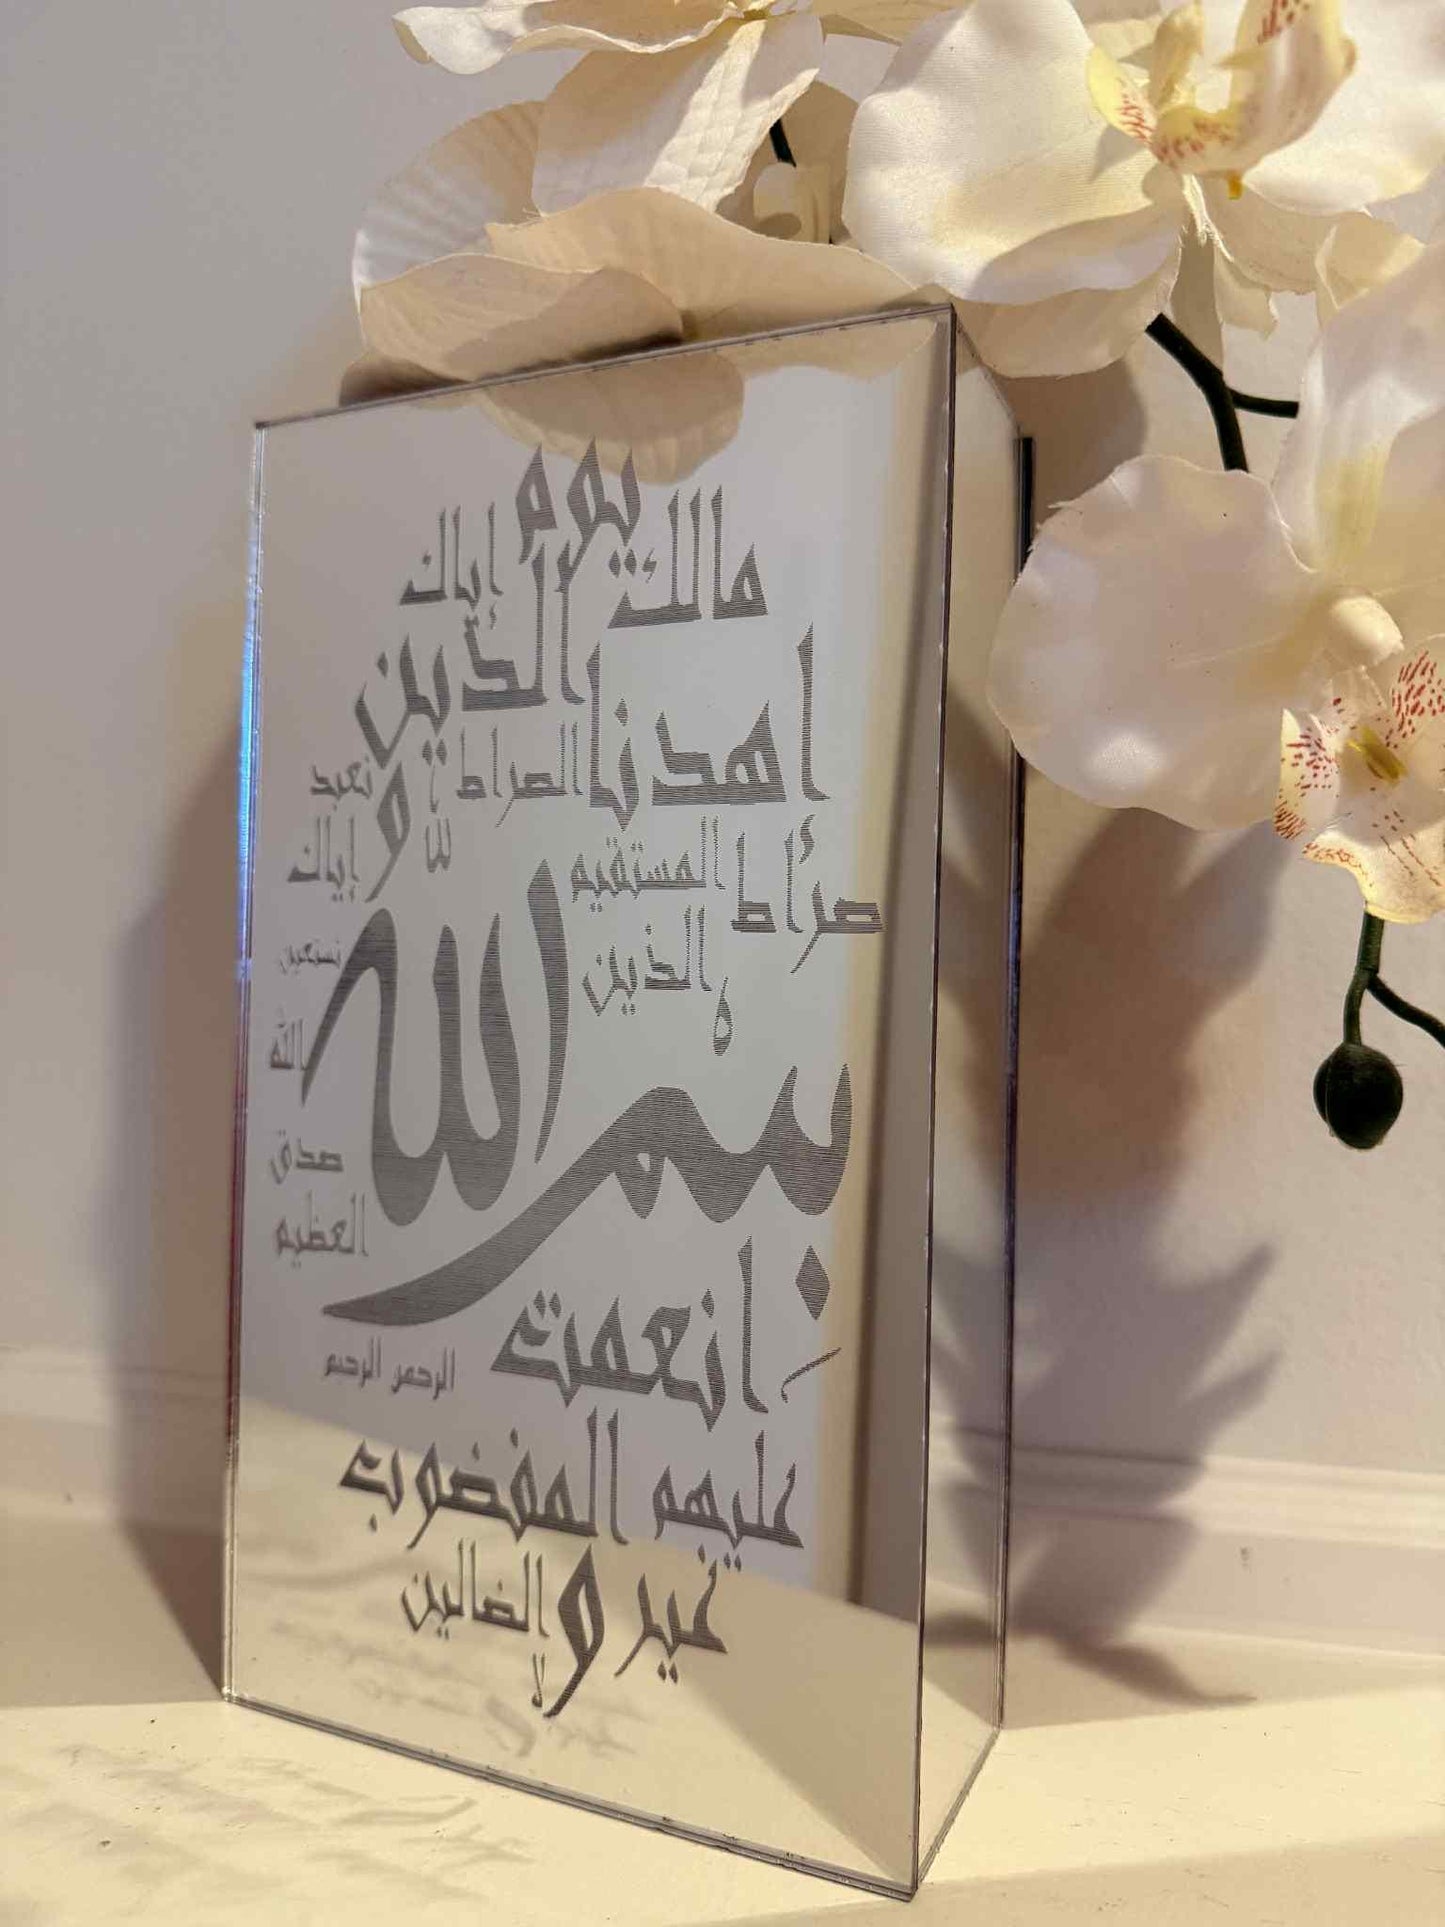 بسم الله
الرحمن الرحيم
مالك يوم
الدين
إياك
نعبد
و
إياك
نستعين
اهدنا الصراط
المستقيم
صراط
الذين
انعمت
عليهم
غير
المغضوب
و
لا
الضالين
صدق
الله
العظيم
لله